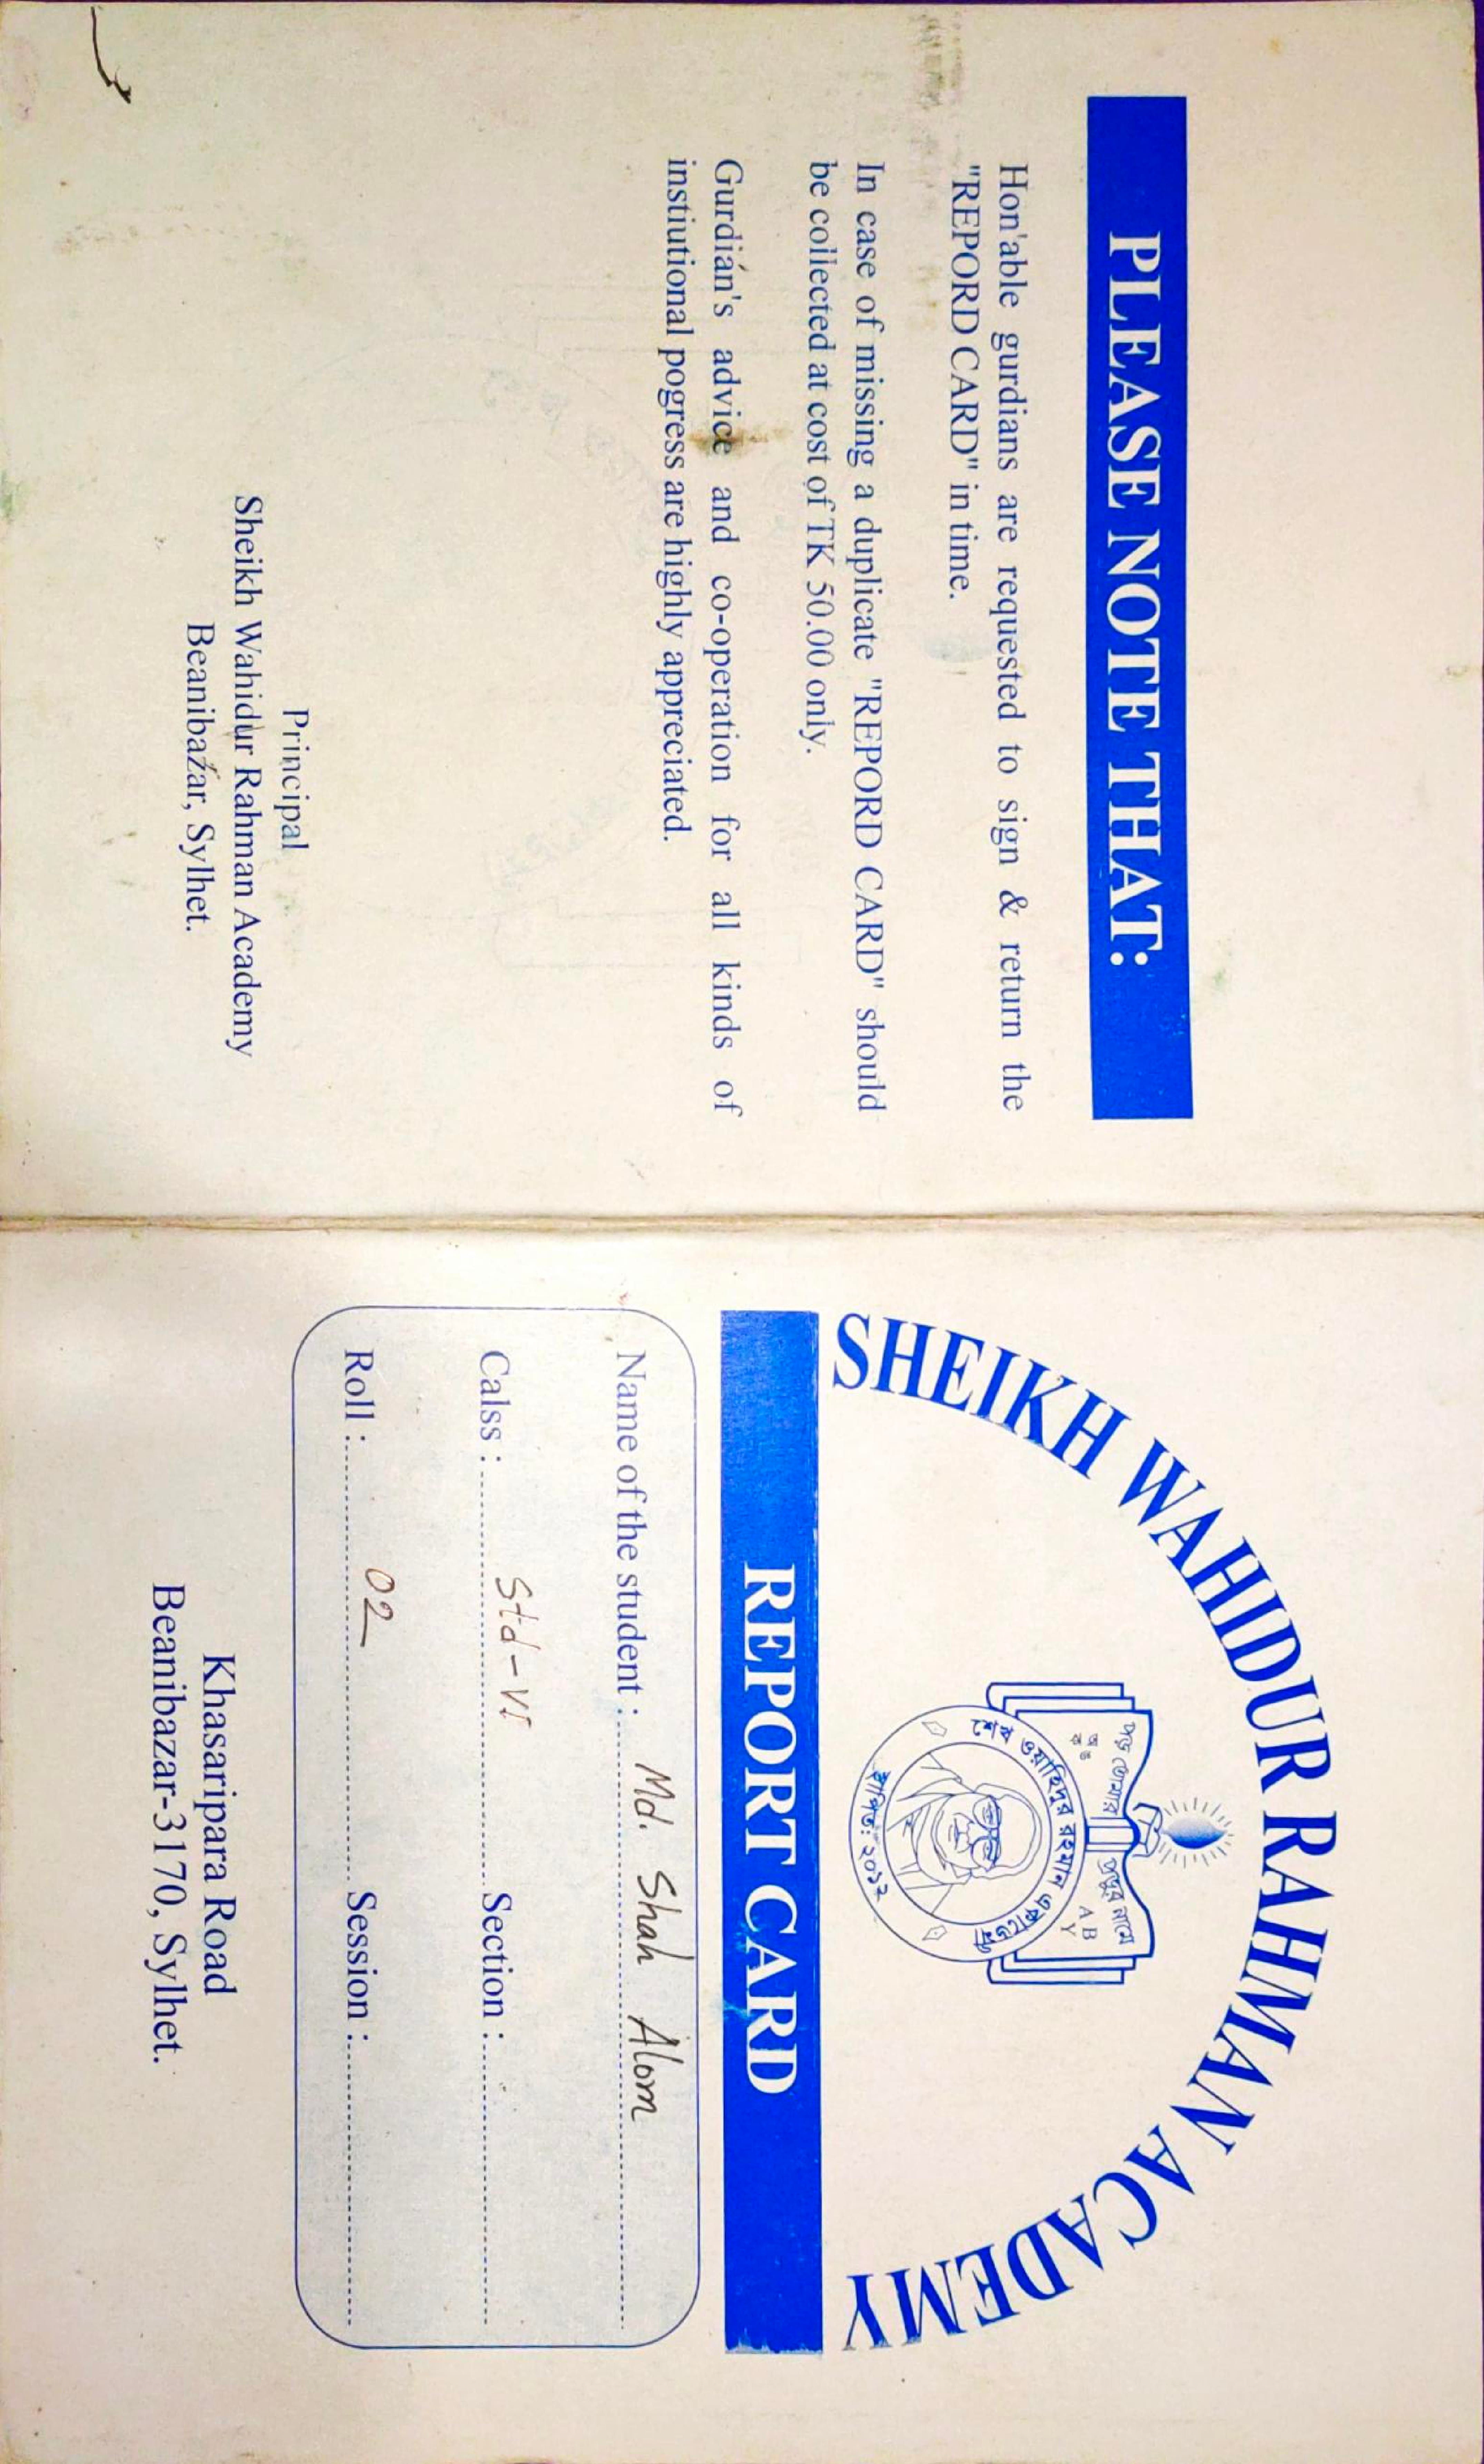 PLEASE NOTE THAT:
Hon'able gurdians are requested to sign & return the
"REPORD CARD" in time.
In case of missing a duplicate "REPORD CARD" should
be collected at cost of TK 50.00 only.
Gurdian's advice and co-operation for all kinds of
instiutional pogress are highly appreciated.
Principal
Sheikh Wahidur Rahman Academy
Beanibazar, Sylhet.
SHEIKH WAHIDUR RAHMAN ACADEMY
পড় তোমার প্রভুর নামে
অ ঙ A B
ক Y
শেখ ওয়াহিদুর রহমান একাডেমী
স্থাপিত: ২০১২
REPORT CARD
Name of the student : Md. Shah Alom
Calss : Std-VI Section :
Roll : 02 Session :
Khasaripara Road
Beanibazar-3170, Sylhet.